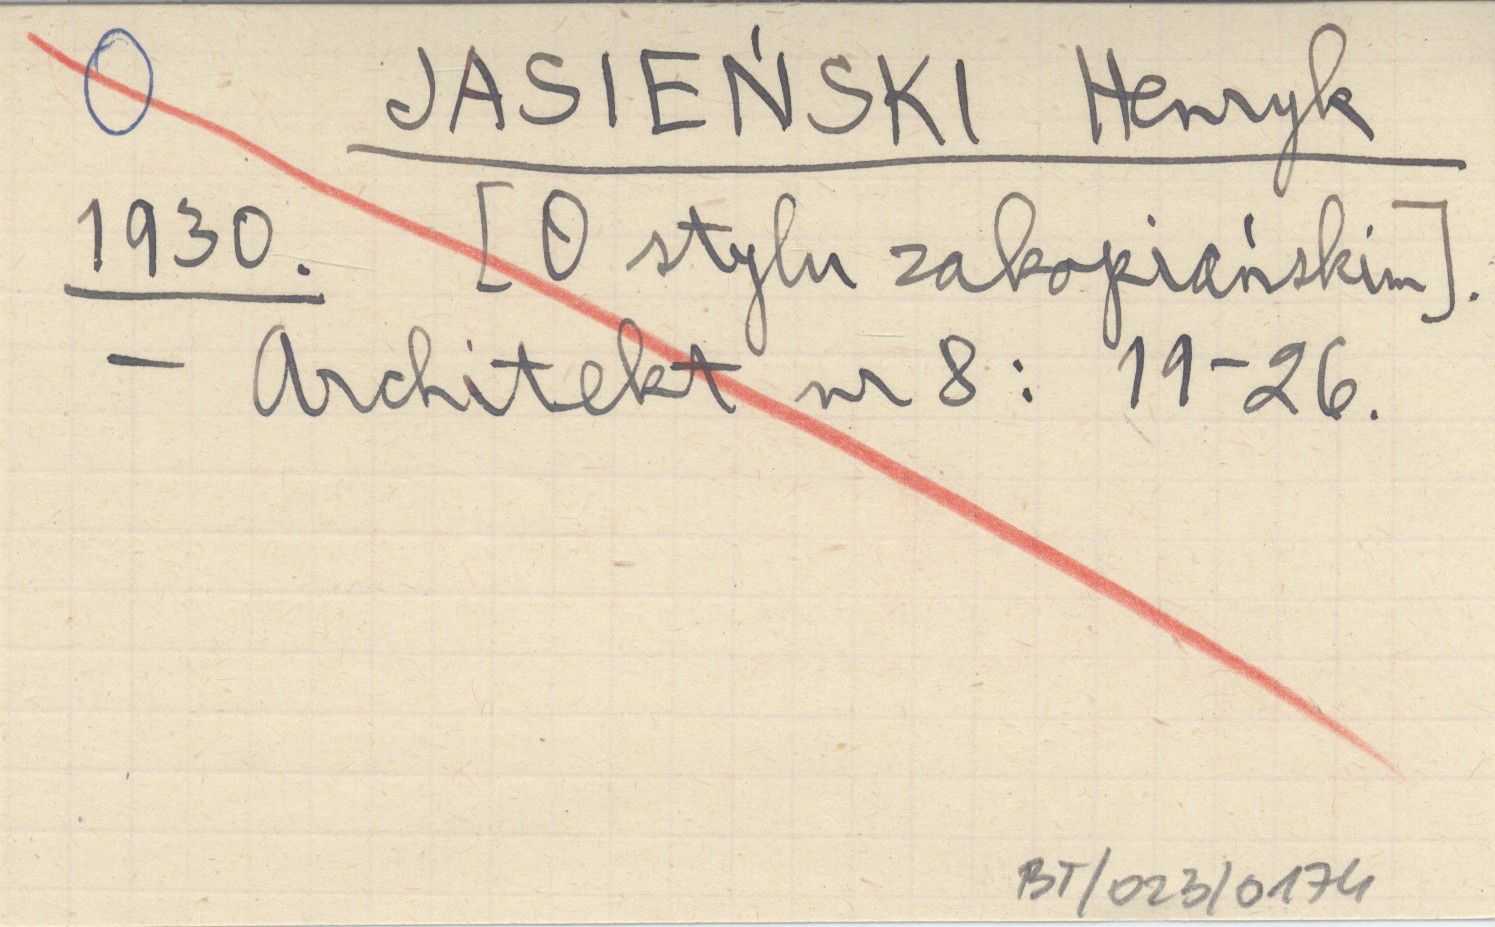 JASIEŃSKI Henryk
1930. [O stylu zakopiańskim].
- Architekt nr 8: 19-26.
BT/023/0174